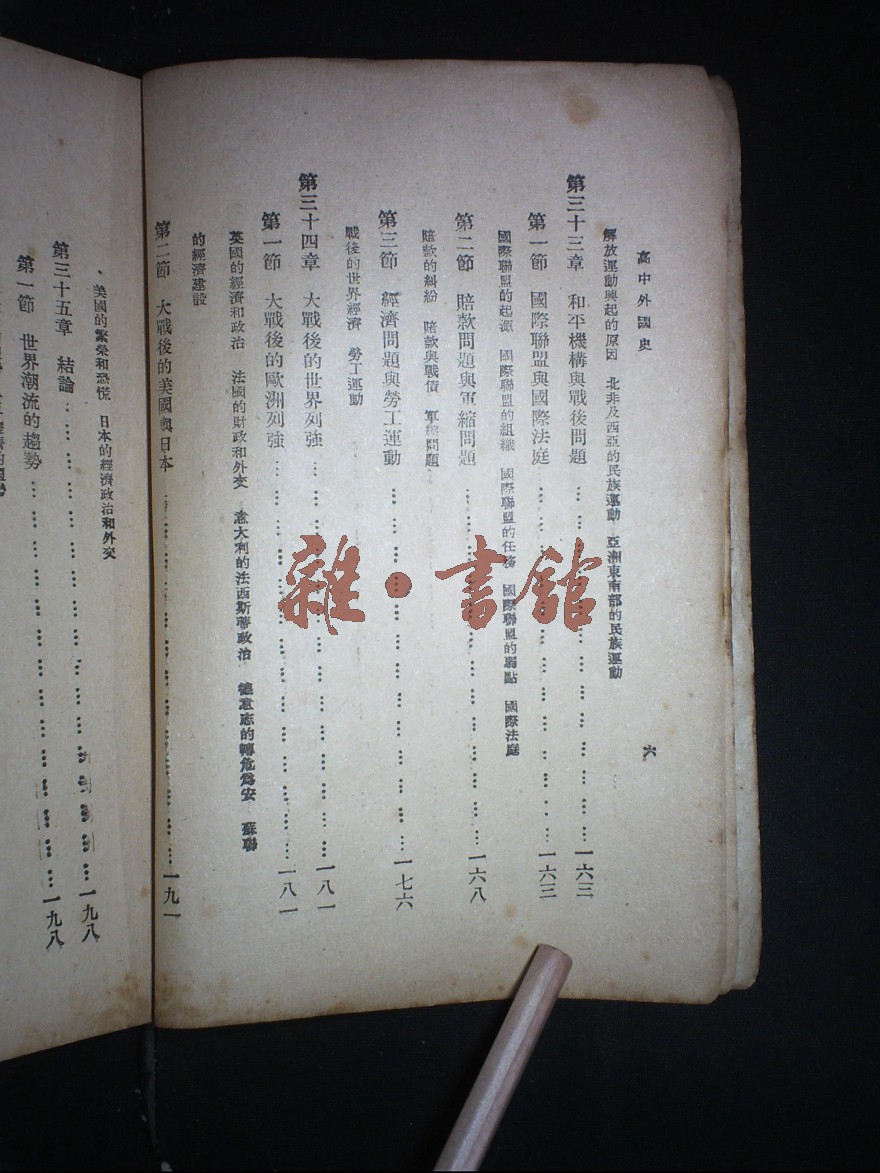 高中外國史
六
解放運動興起的原因 北非及西亞的民族運動 亞洲東南部的民族運動
第三十三章 和平機構與戰後問題………一六三
第一節 國際聯盟與國際法庭………一六三
國際聯盟的起源 國際聯盟的組織 國際聯盟的任務 國際聯盟的弱點 國際法庭
第二節 賠款問題與軍縮問題………一六八
賠款的糾紛 賠款與戰債 軍縮問題
第三節 經濟問題與勞工運動………一七六
戰後的世界經濟 勞工運動
第三十四章 大戰後的世界列強………一八一
第一節 大戰後的歐洲列強………一八一
英國的經濟和政治 法國的財政和外交 意大利的法西斯蒂政治 德意志的轉危為安 蘇聯
的經濟建設
第二節 大戰後的美國與日本………一九一
美國的繁榮和恐慌 日本的經濟政治和外交
第三十五章 結論………一九八
第一節 世界潮流的趨勢………一九八
雜·書館